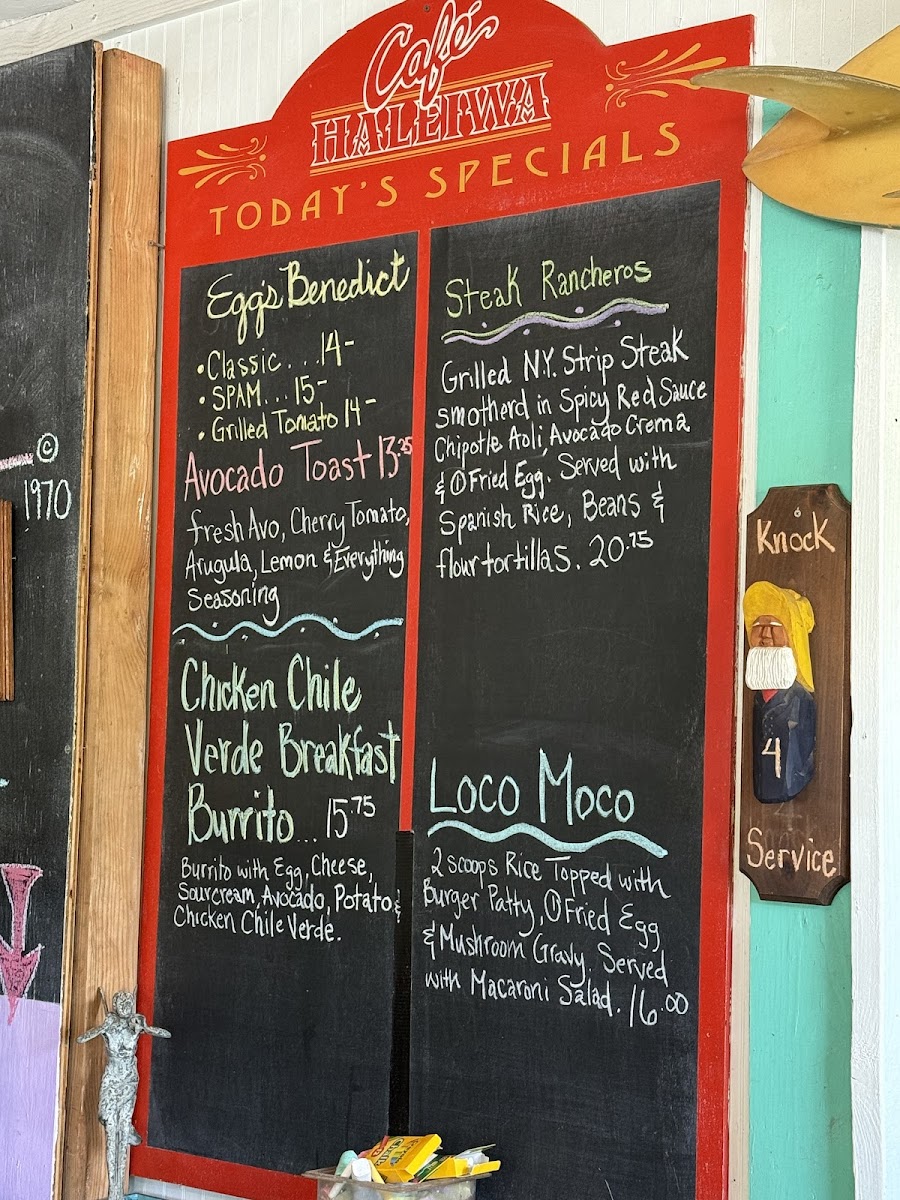 Café
HALEIWA
TODAY'S SPECIALS
Egg's Benedict
• Classic....14-
• SPAM... 15-
• Grilled Tomato 14-
Avocado Toast 13.25
fresh Avo, Cherry Tomato,
Arugula, Lemon & Everything
Seasoning
Chicken Chile
Verde Breakfast
Burrito... 15.75
Burrito with Egg, Cheese,
Sourcream, Avocado, Potato &
Chicken Chile Verde.
Steak Rancheros
Grilled N.Y. Strip Steak
smotherd in Spicy Red Sauce
Chipotle Aoli, Avocado Crema
& ① Fried Egg. Served with
Spanish Rice, Beans &
flour tortillas. 20.75
Loco Moco
2 scoops Rice Topped with
Burger Patty, ① Fried Egg
& Mushroom Gravy. Served
with Macaroni Salad. 16.00
©
1970
Knock
4
Service